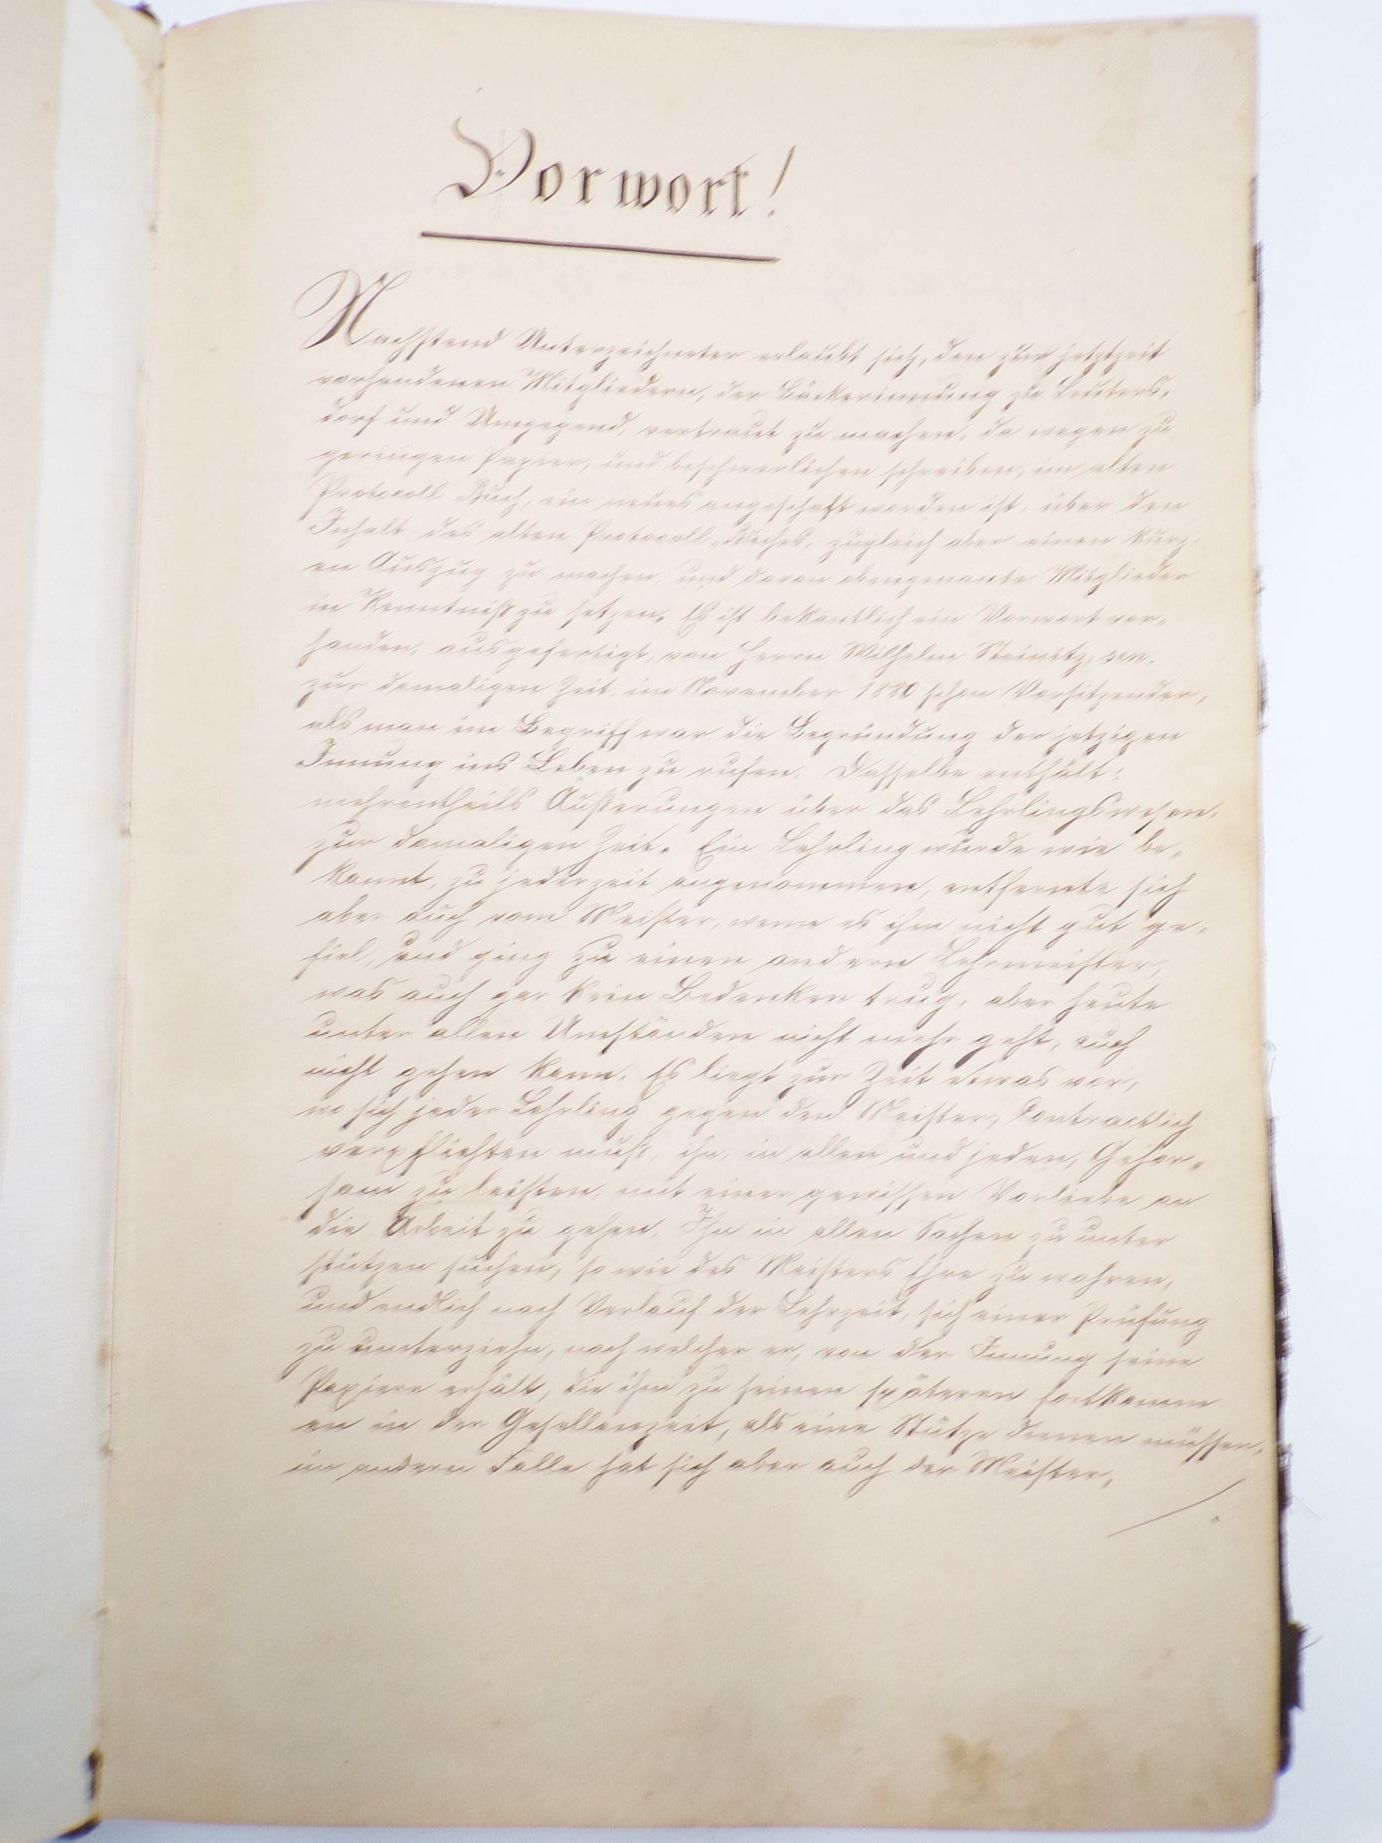 Vorwort!
Nachstend Unterzeichneter erlaubt sich, den zur jetztzeit
vorhandenen Mitgliedern, der Bäckerinnung zu Leuters-
dorf und Umgegend, vertraut zu machen, da wegen zu
geringen Papier, und beschwerlichen schreiben, im alten
Protocoll Buch, ein neues angeschaft worden ist, über den
Inhalt des alten Protocoll-Buches, zugleich aber einen kurz-
en Auszug zu machen, und davon obengenante Mitglieder
in Kenntniß zu setzen. Es ist bekantlich ein Vorwort vor-
handen, ausgefertigt, von Herrn Wilhelm Steinitz, sen.
zur damaligen Zeit, im November 1880 schon Vorsitzender,
als man im Begriff war die Begründung der jetzigen
Innung ins Leben zu rufen. Dasselbe enthält:
mehrentheils Äußerungen über das Lehrlingswesen,
zur damaligen Zeit. Ein Lehrling wurde wie be-
kannt, zu jederzeit angenommen, entfernte sich
aber auch vom Meister, wenn es ihm nicht gut ge-
fiel, und ging zu einen andern Lehrmeister,
was auch gar kein Bedenken trug, aber heute
unter allen Umständen nicht mehr geht, auch
nicht gehen kann. Es liegt zur Zeit etwas vor,
wo sich jeder Lehrling gegen den Meister, Contractlich
verpflichten muß, ihn, in allen und jeden, Gehor-
sam zu leisten, mit einer gewissen Vorliebe an
die Arbeit zu gehen, Ihn in allen Sachen zu unter
stützen suchen, so wie des Meisters Ehre zu wahren,
und endlich nach Verlauf der Lehrzeit, sich einer Prüfung
zu unterziehn, nach welcher er, von der Innung seine
Papiere erhält, die ihm zu seinen späteren fortkomm
en in der Gesellenzeit, als eine Stütze dienen müssen.
im andern Falle hat sich aber auch der Meister,